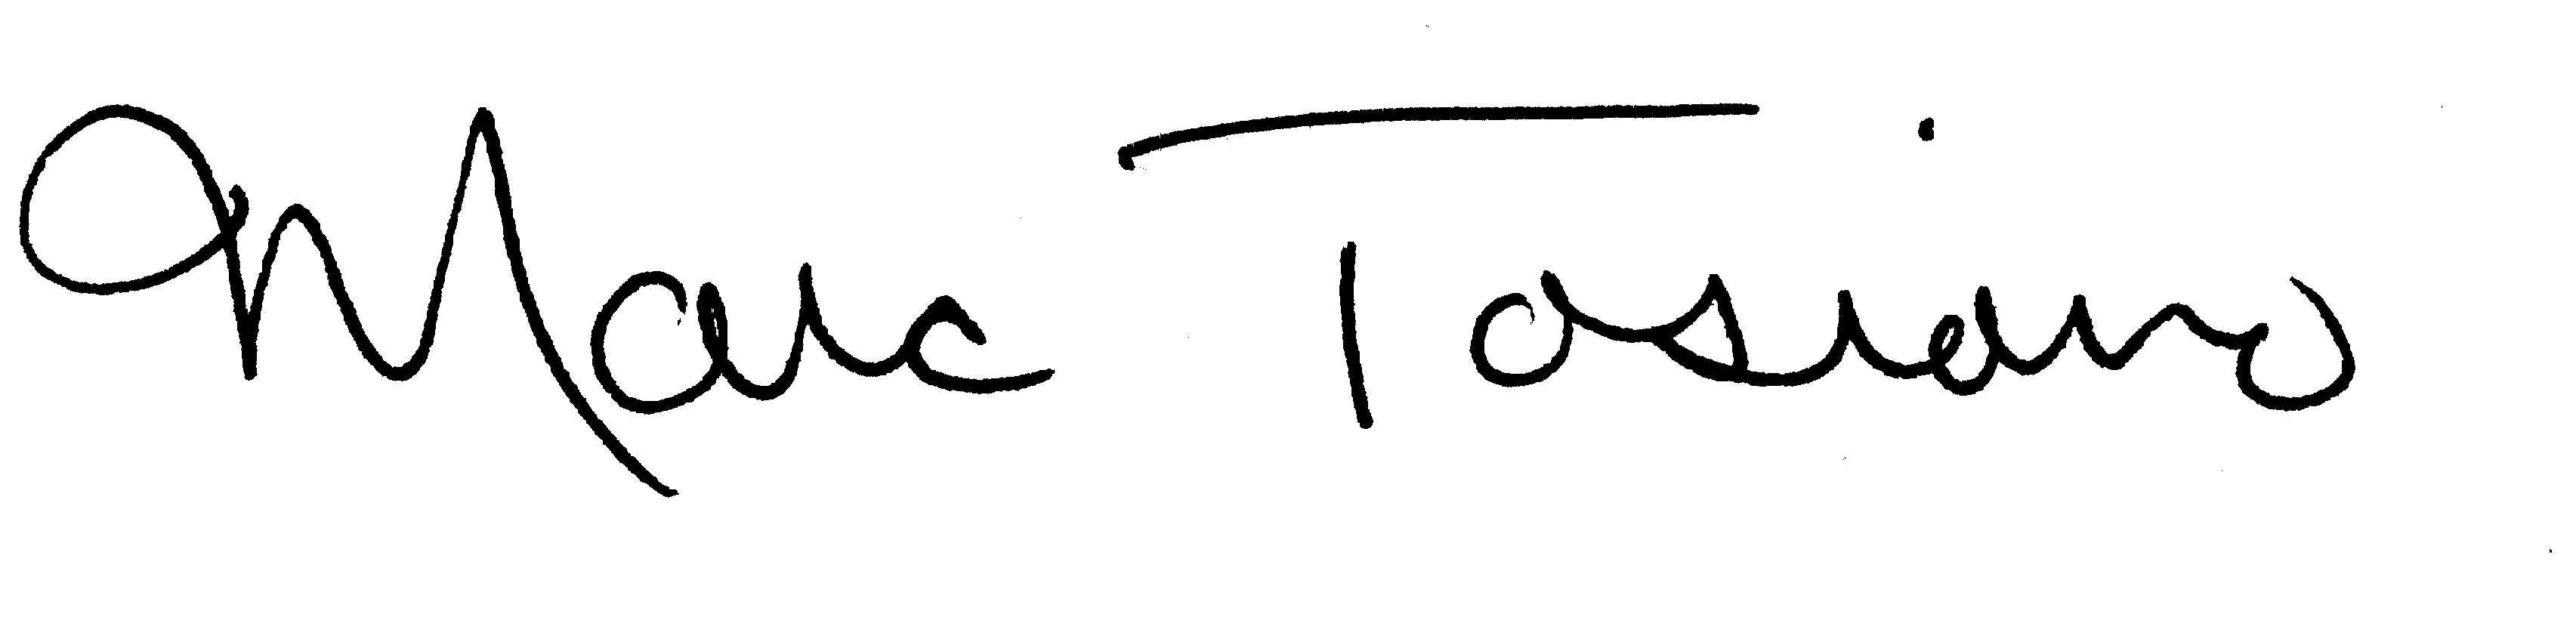 Marc Tosiano